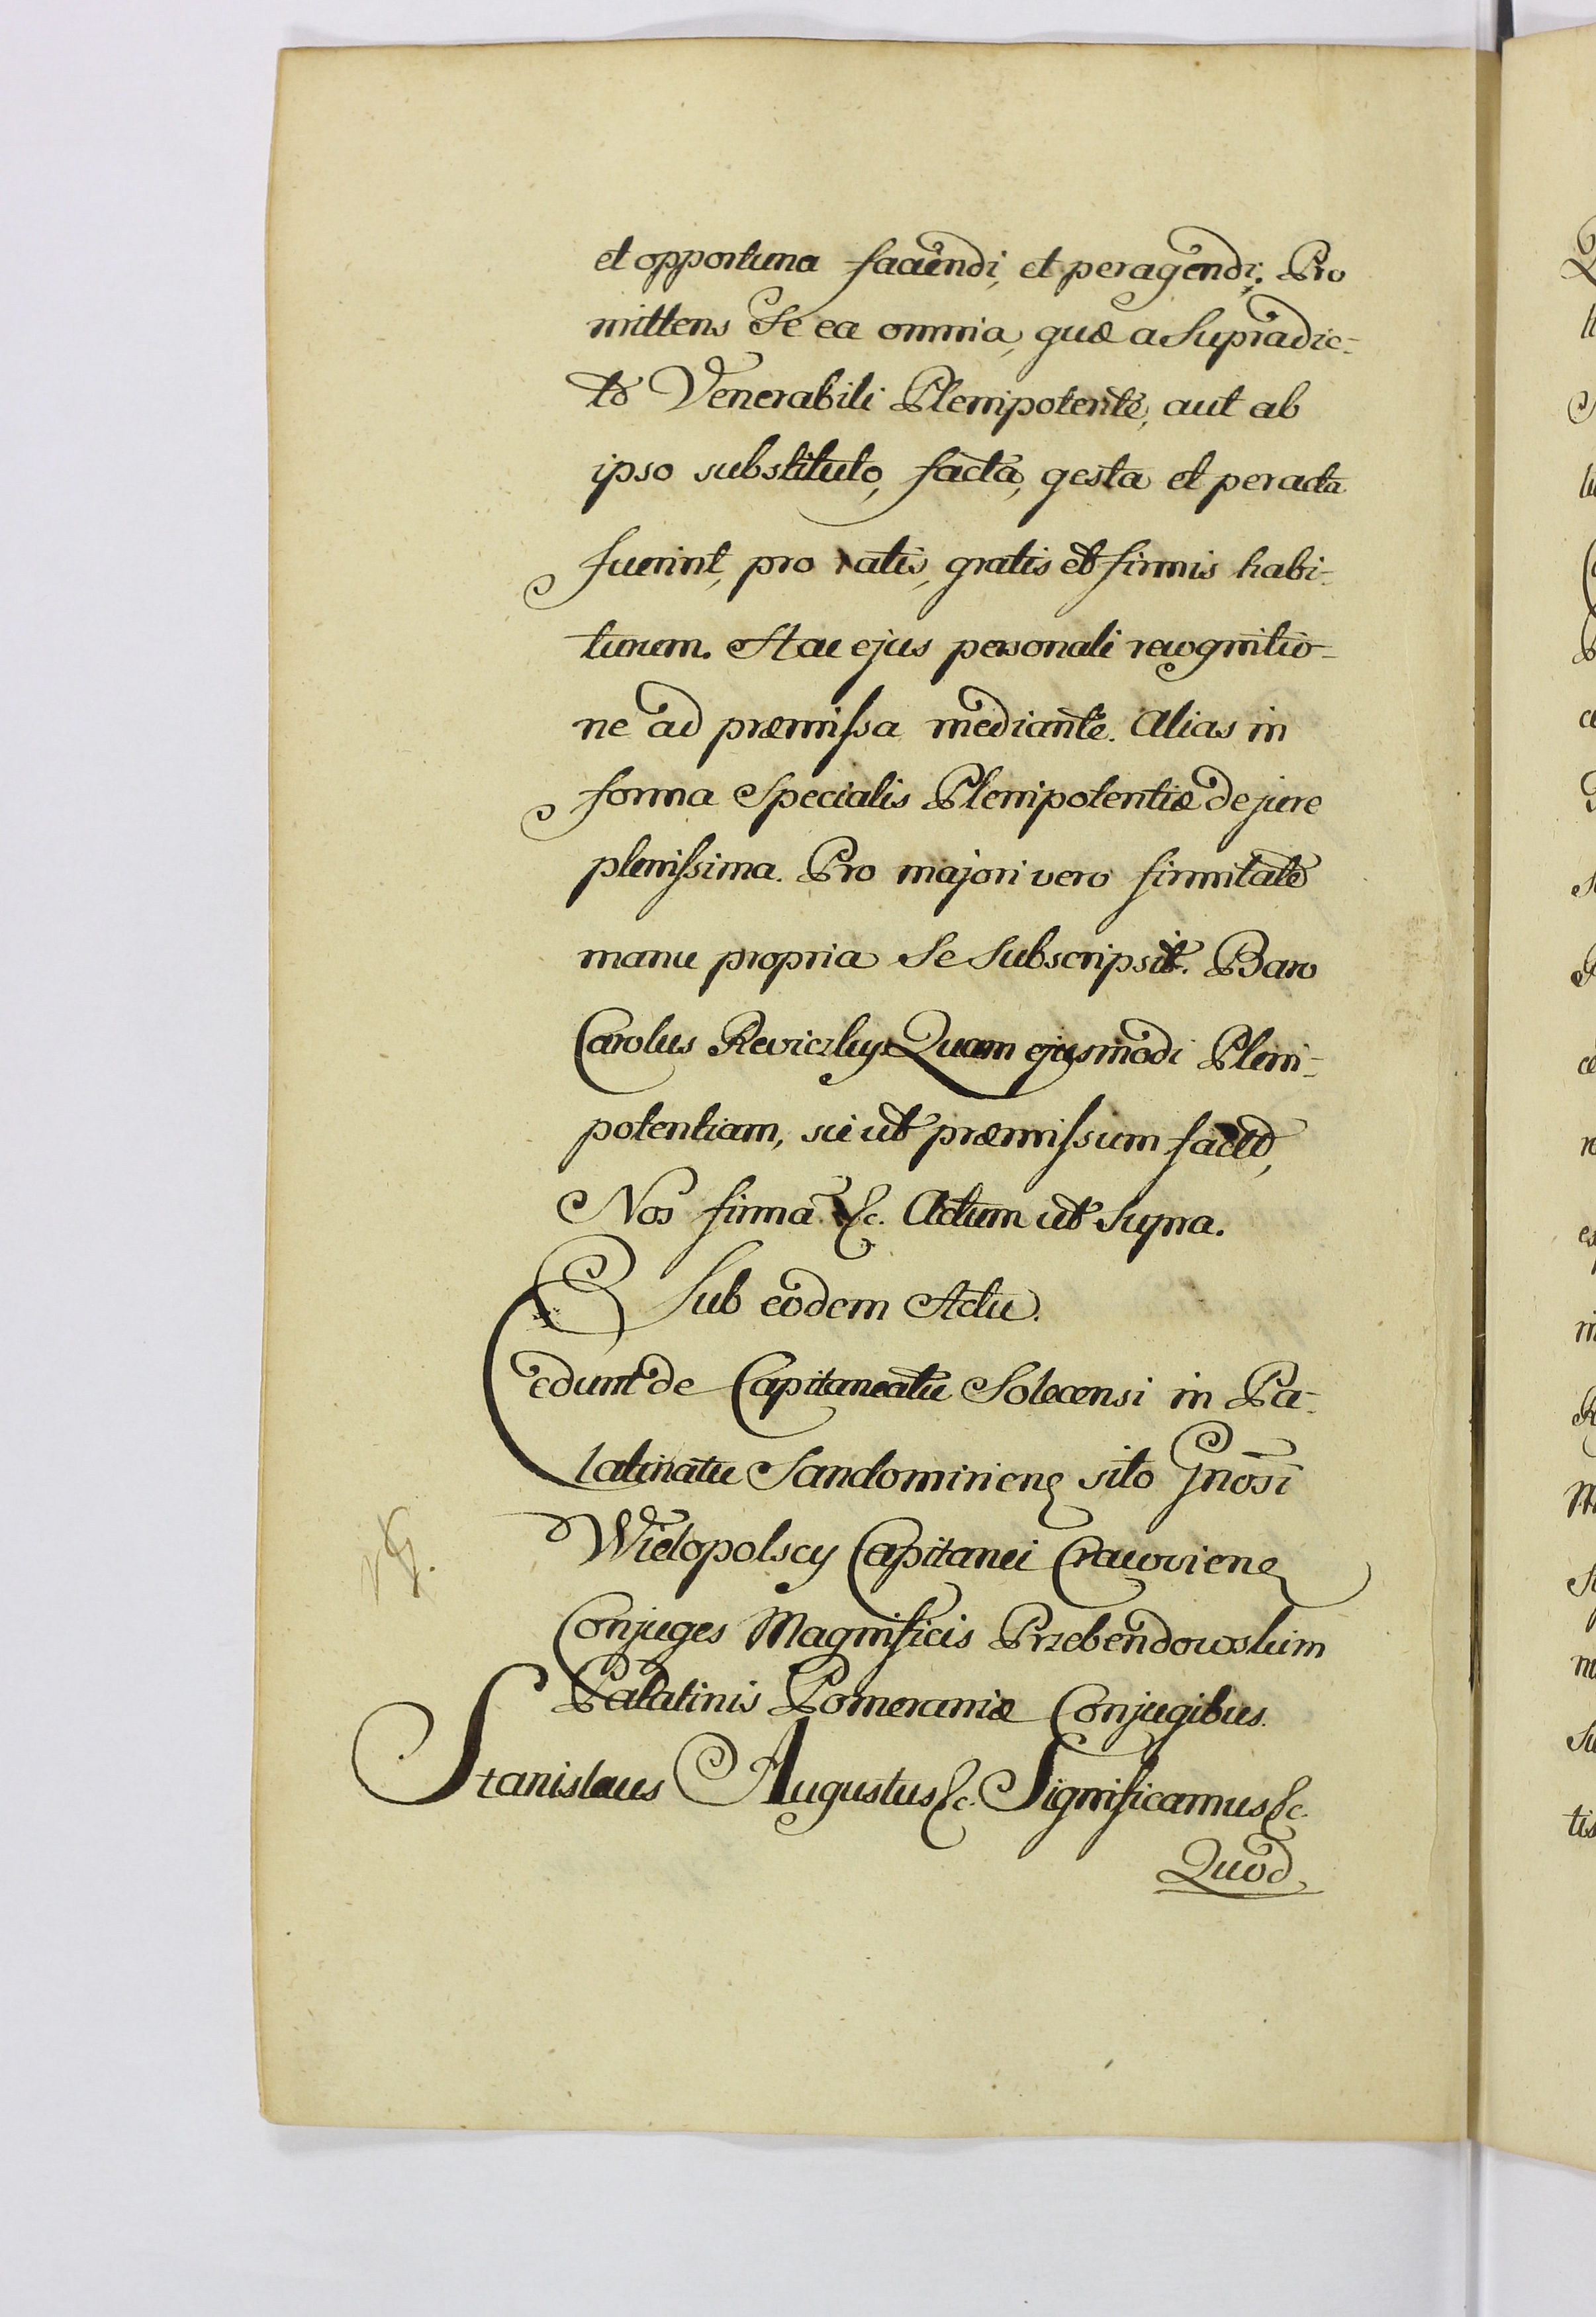 et opportuna faciendi, et peragendi. Pro
mittens Se ea omnia, quæ a Supradic-
to Venerabili Plenipotente, aut ab
ipso substituto, facta, gesta et peracta
fuerint, pro ratis, gratis et firmis habi-
turum. Hac ejus personali recognitio-
ne ad præmissa mediante. Alias in
forma Specialis Plenipotentiæ de jure
plenissima. Pro majori vero firmitate
manu propria Se Subscripsit. Baro
Carolus Reviczky. Quam ejusmodi Pleni-
potentiam, sic ut præmissum facto,
Nos firma &c. Actum ut Supra.
Sub eodem Actu.
Cedunt de Capitaneatu Solecensi in Pa-
latinatu Sandomirien sito Gnosi
Wielopolscy Capitanei Cracovien
Conjuges Magnificis Przebendowskim
Palatinis Pomeraniæ Conjugibus.
Stanislaus Augustus &c. Significamus &c.
Quod